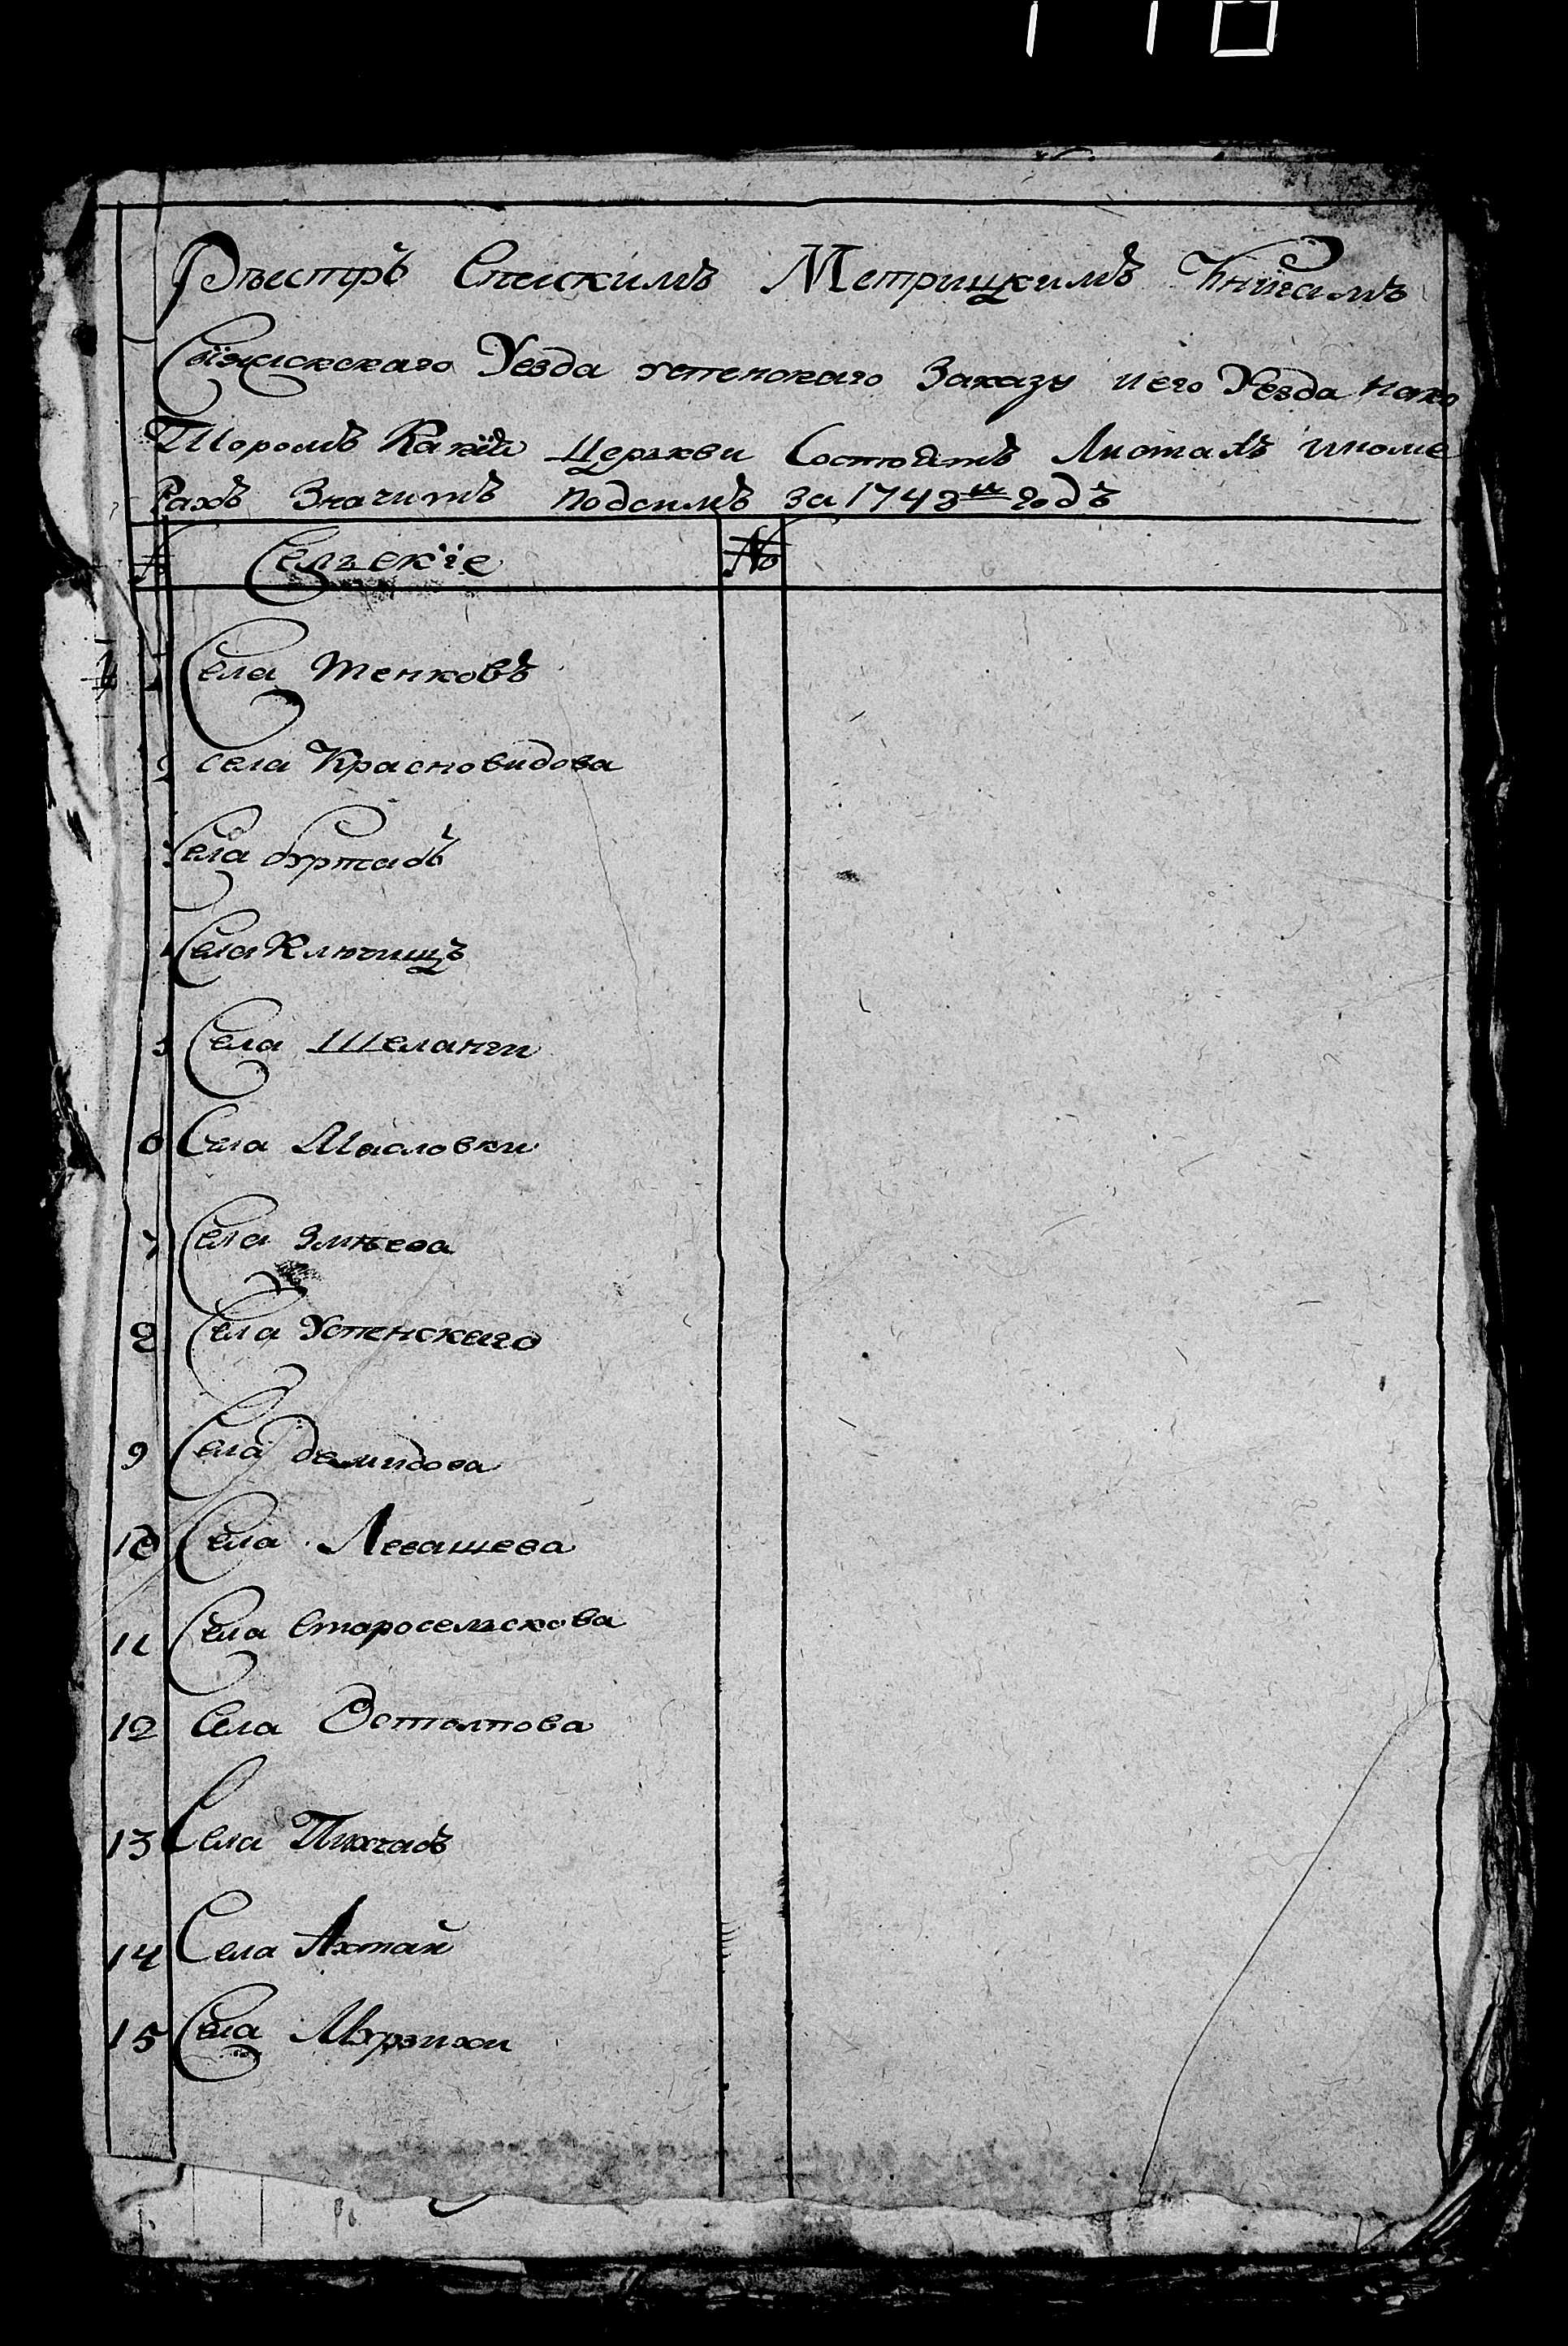 Рѣестръ Спаскимъ Метрицкимъ Книгамъ
Свияжскскаго Уезда успенскаго Заказу и его Уезда нако
Торомъ Какия Церькви Состоятъ Листахъ иноме
Рахъ Значитъ подсимъ за 1743 годъ
№ Селъскïе №
1 Села Тенковъ
2 Села Красновидова
Села буртасъ
Села Ключищъ
5 Села Шеланги
6 Села Масловки
7 Села Змѣева
8 Села Успенскаго
9 Села демидова
10 Села Левашева
11 Села Старосельскова
12 Села Остолпова
13 Села Пихчасъ
14 Села Ахтай
15 Села Мурзихи